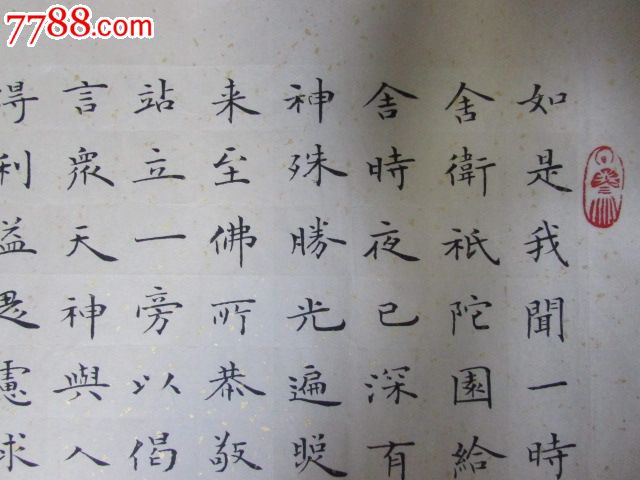 7788.com
如是我聞一時
舍衛祇陀園給
舍時夜已深有
神殊勝光遍
来至佛所恭敬
站立一旁以偈
言眾天神與人
得利益思慮求